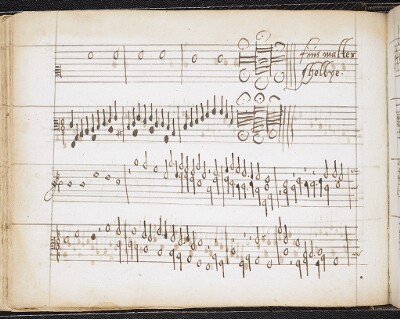 finis master
shelbye.